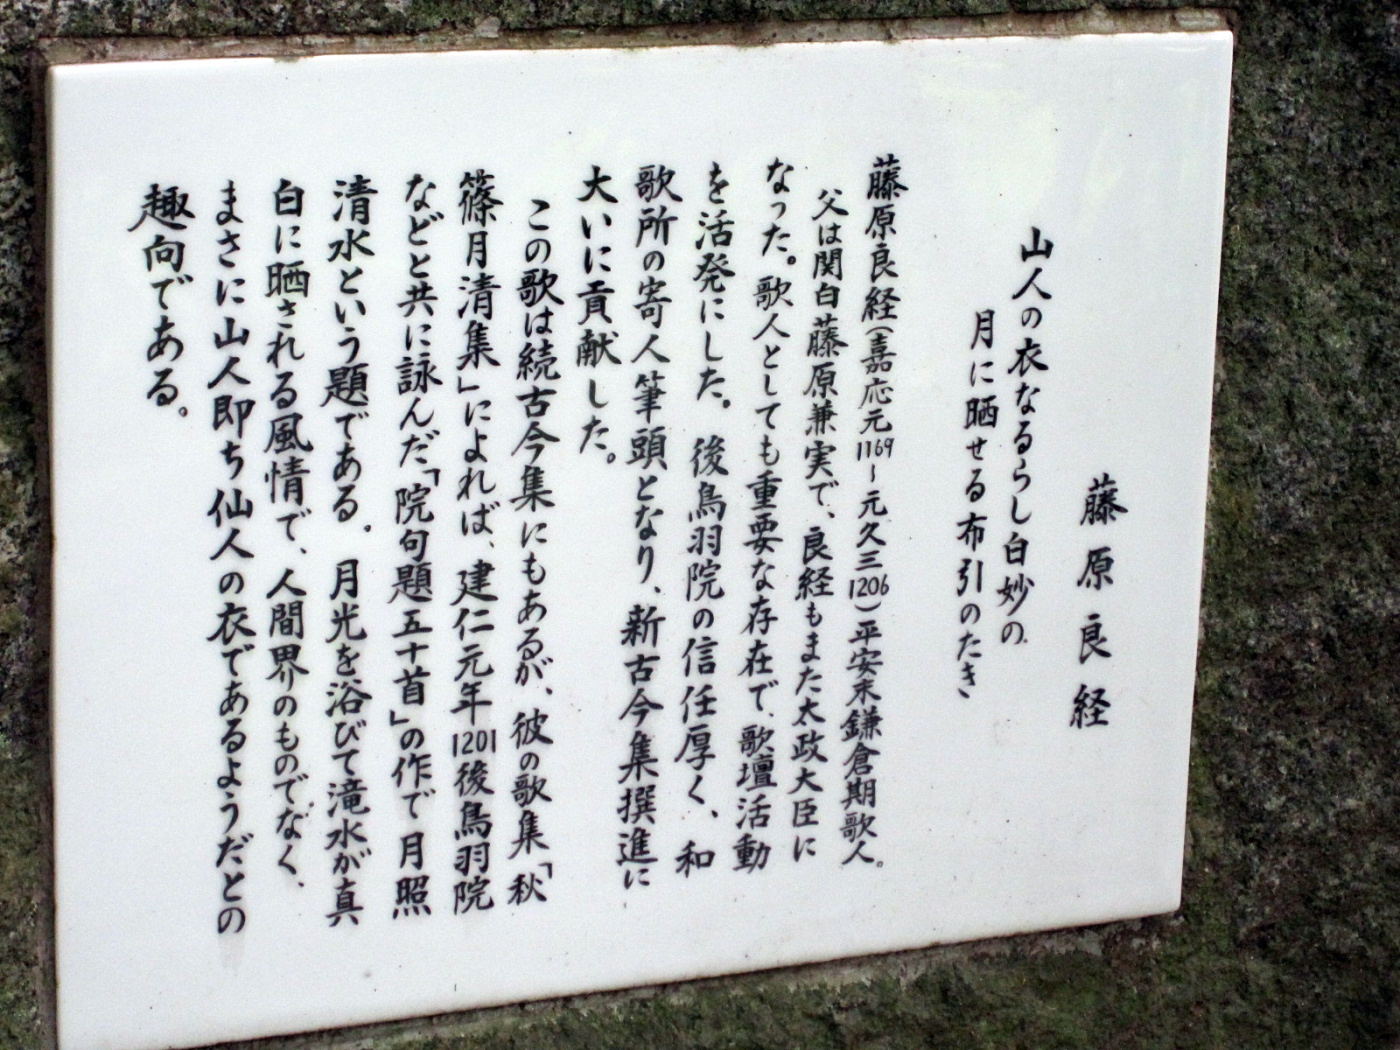 藤原良経
山人の衣なるらし白妙の
月に晒せる布引のたき
藤原良経(嘉応元1169~元久三1206)平安末鎌倉期歌人。
父は関白藤原兼実で、良経もまた太政大臣に
なった。歌人としても重要な存在で、歌壇活動
を活発にした。後鳥羽院の信任厚く、和
歌所の寄人筆頭となり、新古今集撰進に
大いに貢献した。
この歌は続古今集にもあるが、彼の歌集「秋
篠月清集」によれば、建仁元年1201後鳥羽院
などと共に詠んだ「院句題五十首」の作で月照
清水という題である。月光を浴びて滝水が真
白に晒される風情で、人間界のものでなく、
まさに山人即ち仙人の衣であるようだとの
趣向である。